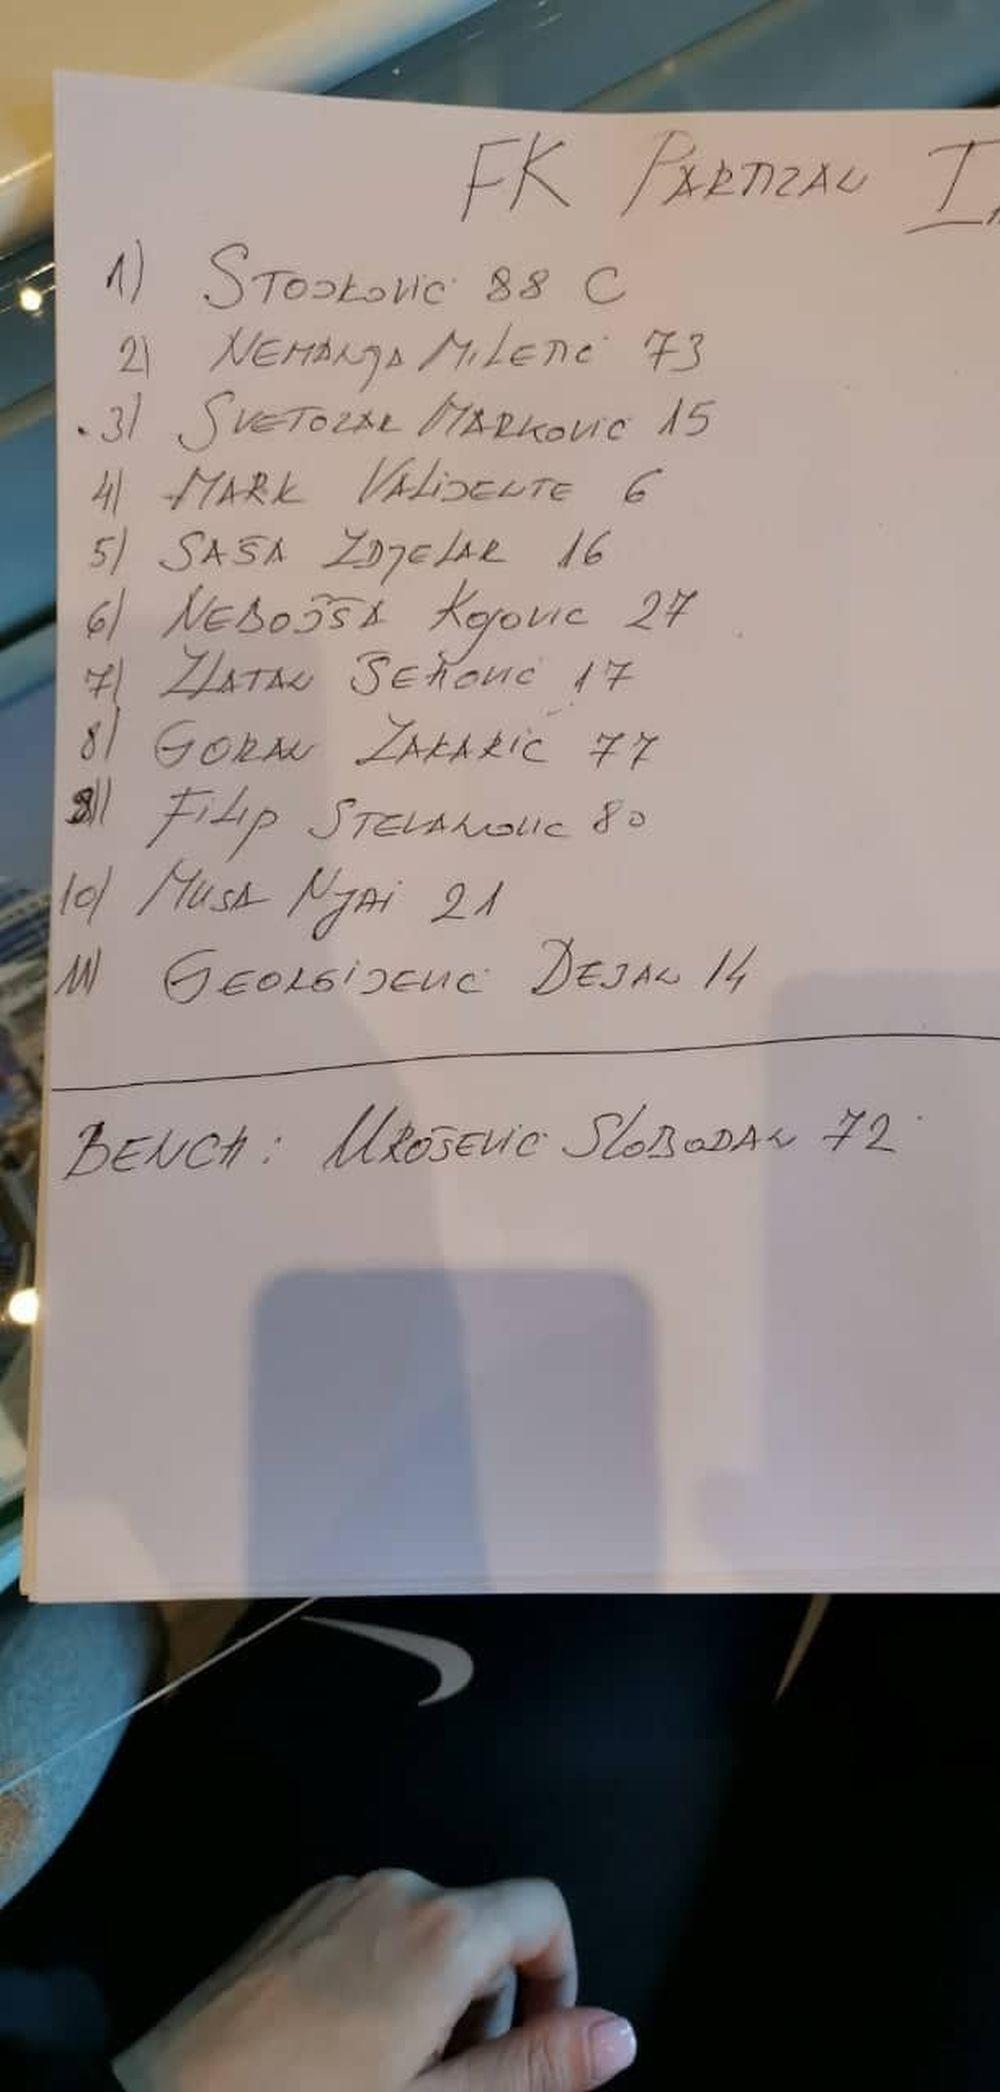 FK PARTIZAN
1) STOJKOVIC 88 C
2) NEMANJA MILETIC 73
3) SVETOZAR MARKOVIC 15
4) MARK VALIJENTE 6
5) SAŠA ZDJELAR 16
6) NEBOJŠA KOJOVIC 27
7) ZLATAN ŠEHOVIC 17
8) GORAN ZAKARIC 77
9) FILIP STEVANOVIC 80
10) MUSA NJAI 21
11) GEORGIJEVIC DEJAN 14
BENCH: UROŠEVIC SLOBODAN 72